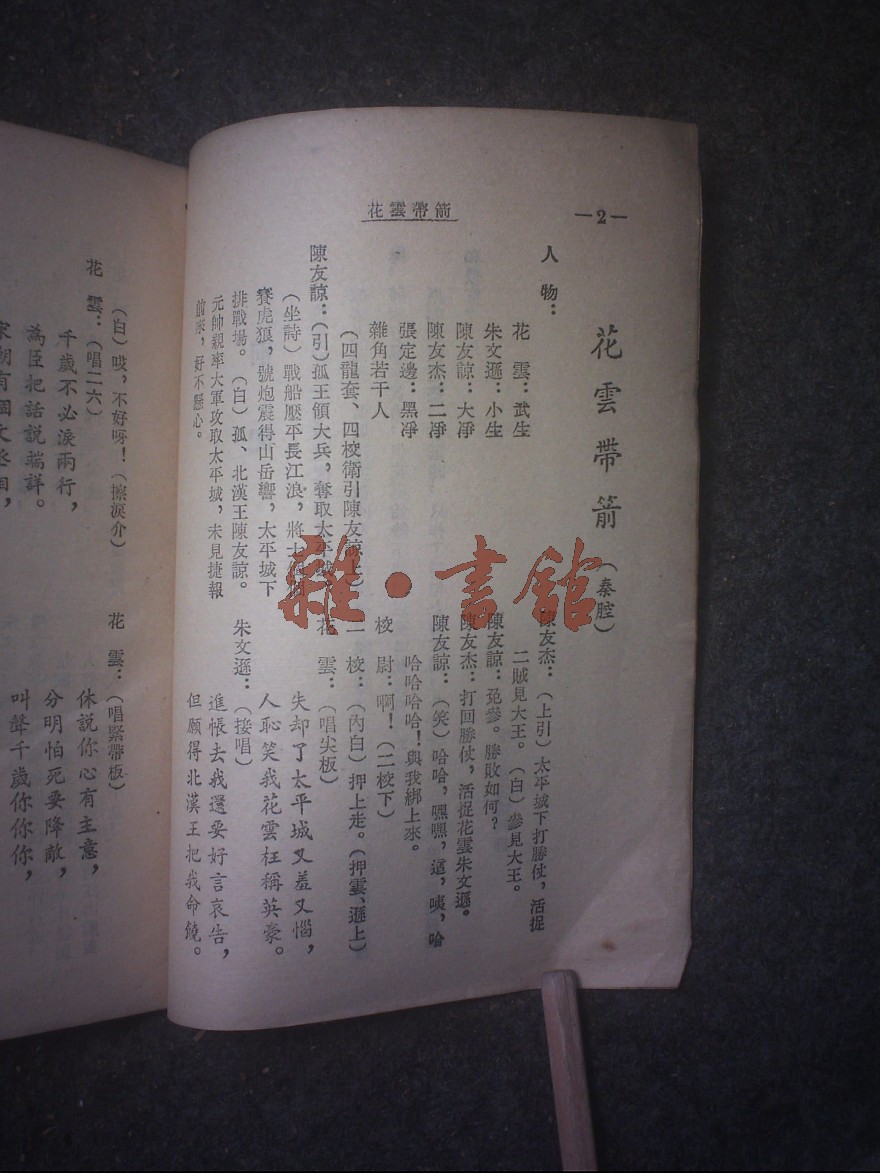 —2—
花雲帶箭
花雲帶箭（秦腔）
人物：
花　雲：武生
朱文遜：小生
陳友諒：大凈
陳友杰：二凈
張定邊：黑凈
雜角若干人
（四龍套、四校衛引陳友諒上）
陳友諒：（引）孤王領大兵，奪取太平城。
（坐詩）戰船壓平長江浪，將士個個
賽虎狼，號炮震得山岳響，太平城下
排戰場。（白）孤、北漢王陳友諒。
元帥親率大軍攻取太平城，未見捷報
前來，好不懸心。
陳友杰：（上引）太平城下打勝仗，活捉
二賊見大王。（白）參見大王。
陳友諒：免參。勝敗如何？
陳友杰：打回勝仗，活捉花雲朱文遜。
陳友諒：（笑）哈哈，嘿嘿，這，咦，哈
哈哈哈哈！與我綁上來。
校　尉：啊！（二校下）
二　校：（內白）押上走。（押雲、遜上）
花　雲：（唱尖板）
失却了太平城又羞又惱，
人恥笑我花雲枉稱英豪。
朱文遜：（接唱）
進帳去我還要好言哀告，
但願得北漢王把我命饒。
（白）哎，不好呀！（擦淚介）
花　雲：（唱二六）
千歲不必淚兩行，
為臣把話說端詳。
宋朝有個文丞相，
花　雲：（唱緊帶板）
休說你心有主意，
分明怕死要降敵，
叫聲千歲你你你，
雜·書館